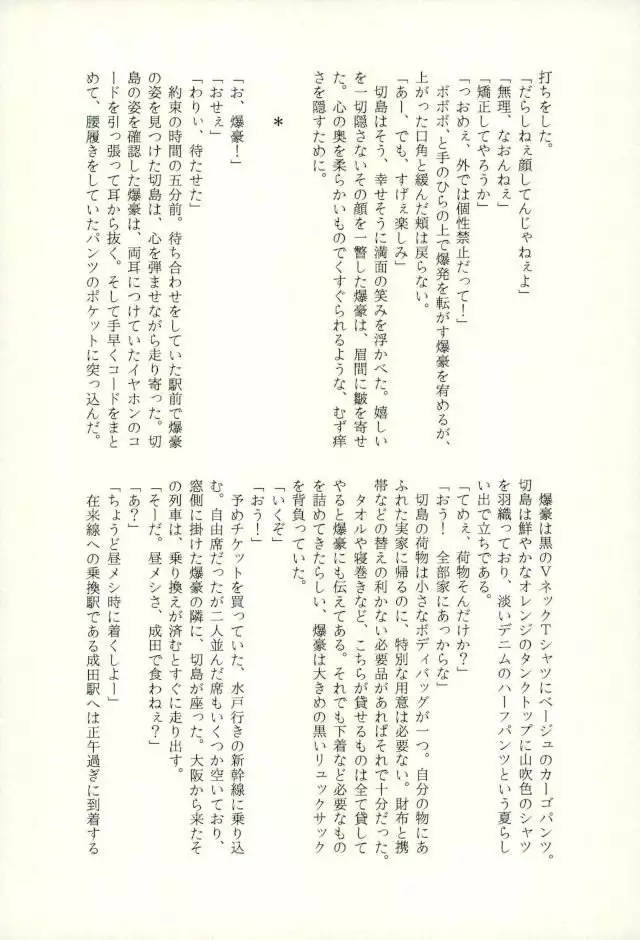 打ちをした。
「だらしねぇ顔してんじゃねぇよ」
「無理、なおんねぇ」
「矯正してやろうか」
「っおめぇ、外では個性禁止だって！」
ボボボ、と手のひらの上で爆発を転がす爆豪を宥めるが、
上がった口角と緩んだ頬は戻らない。
「あー、でも、すげぇ楽しみ」
切島はそう、幸せそうに満面の笑みを浮かべた。嬉しい
を一切隠さないその顔を一瞥した爆豪は、眉間に皺を寄せ
た。心の奥を柔らかいものでくすぐられるような、むず痒
さを隠すために。
*
「お、爆豪！」
「おせぇ」
「わりぃ、待たせた」
約束の時間の五分前。待ち合わせをしていた駅前で爆豪
の姿を見つけた切島は、心を弾ませながら走り寄った。切
島の姿を確認した爆豪は、両耳につけていたイヤホンのコ
ードを引っ張って耳から抜く。そして手早くコードをまと
めて、腰履きをしていたパンツのポケットに突っ込んだ。
爆豪は黒のVネックTシャツにベージュのカーゴパンツ。
切島は鮮やかなオレンジのタンクトップに山吹色のシャツ
を羽織っており、淡いデニムのハーフパンツという夏らし
い出で立ちである。
「てめぇ、荷物そんだけか？」
「おう！　全部家にあっからな」
切島の荷物は小さなボディバッグが一つ。自分の物にあ
ふれた実家に帰るのに、特別な用意は必要ない。財布と携
帯などの替えの利かない必要品があればそれで十分だった。
タオルや寝巻きなど、こちらが貸せるものは全て貸して
やると爆豪にも伝えてある。それでも下着など必要なもの
を詰めてきたらしい、爆豪は大きめの黒いリュックサック
を背負っていた。
「いくぞ」
「おう！」
予めチケットを買っていた、水戸行きの新幹線に乗り込
む。自由席だったが二人並んだ席もいくつか空いており、
窓側に掛けた爆豪の隣に、切島が座った。大阪から来たそ
の列車は、乗り換えが済むとすぐに走り出す。
「そーだ。昼メシさ、成田で食わねぇ？」
「あ？」
「ちょうど昼メシ時に着くしよー」
在来線への乗換駅である成田駅へは正午過ぎに到着する